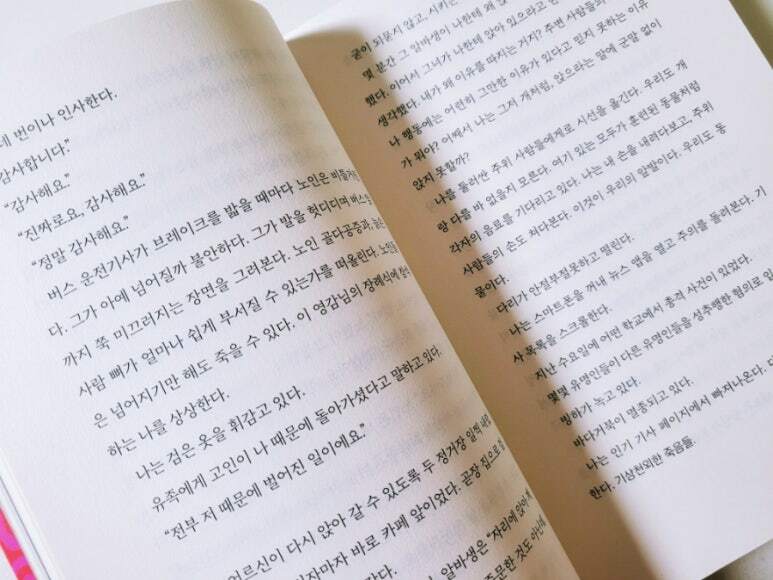 데 번이나 인사한다.
감사합니다."
"감사해요."
"진짜로요, 감사해요."
"정말 감사해요."
버스 운전기사가 브레이크를 밟을 때마다 노인은 비틀거
다. 그가 아예 넘어질까 불안하다. 그가 발을 헛디디며 버스
까지 쭉 미끄러지는 장면을 그려본다. 노인 골다공증과,
사람 뼈가 얼마나 쉽게 부서질 수 있는가를 떠올린다. 노인
은 넘어지기만 해도 죽을 수 있다. 이 영감님의 장례식에 참석
하는 나를 상상한다.
나는 검은 옷을 휘감고 있다.
유족에게 고인이 나 때문에 돌아가셨다고 말하고 있다.
"전부 저 때문에 벌어진 일이에요."
어르신이 다시 앉아 갈 수 있도록 두 정거장 일찍
자마자 바로 카페 앞이었다. 곧장 집으로
알바생은 "자리에 앉아계
주문한 것도 아닌데
굳이 되묻지 않고, 시키는
몇 분간 그 알바생이 나한테 왜
했다. 이어서 그녀가 나한테 앉아 있으라고 한
생각했다. 내가 왜 이유를 따지는 거지? 주변 사람들의
나 행동에는 어련히 그만한 이유가 있다고 믿지 못하는 이유
가 뭐야? 어째서 나는 그저 개처럼, 앉으라는 말에 군말 없이
앉지 못할까?
나를 둘러싼 주위 사람들에게로 시선을 옮긴다. 우리도 개
랑 다를 바 없을지 모른다. 여기 있는 모두가 훈련된 동물처럼
각자의 음료를 기다리고 있다. 나는 내 손을 내려다보고, 주위
사람들의 손도 쳐다본다. 이것이 우리의 앞발이다. 우리도 동
물이다.
다리가 안절부절못하고 떨린다.
나는 스마트폰을 꺼내 뉴스 앱을 열고 주의를 돌려본다. 기
사 목록을 스크롤한다.
지난 수요일에 어떤 학교에서 총격 사건이 있었다.
몇몇 유명인들이 다른 유명인들을 성추행한 혐의로
빙하가 녹고 있다.
바다거북이 멸종되고 있다.
나는 인기 기사 페이지에서 빠져나온다.
한다. 기상천외한 죽음들.